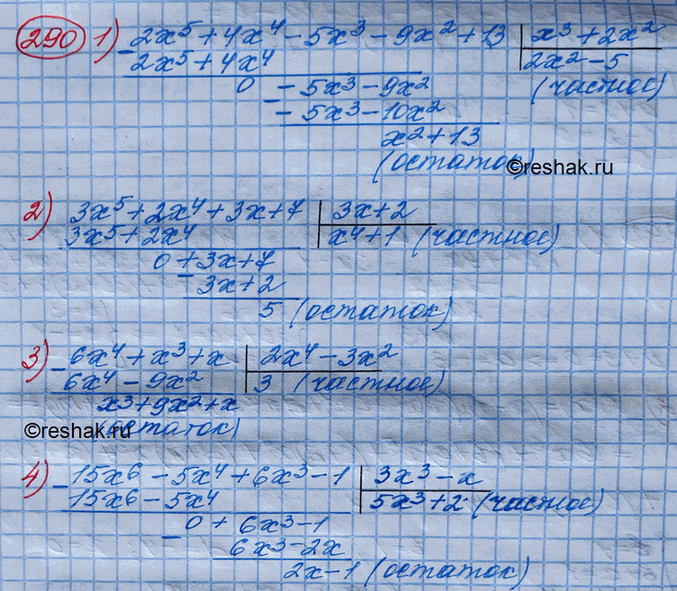 290 1) - 2x⁵ + 4x⁴ - 5x³ - 9x² + 13 | x³ + 2x²
2x⁵ + 4x⁴ | 2x² - 5
0 - - 5x³ - 9x² (частное)
- 5x³ - 10x²
x² + 13
(остаток)
©reshak.ru
2) 3x⁵ + 2x⁴ + 3x + 7 | 3x + 2
3x⁵ + 2x⁴ | x⁴ + 1 (частное)
0 + 3x + 7
- 3x + 2
5 (остаток)
3) - 6x⁴ + x³ + x | 2x⁴ - 3x²
6x⁴ - 9x² | 3 (частное)
x³ + 9x² + x
©reshak.ru (остаток)
4) - 15x⁶ - 5x⁴ + 6x³ - 1 | 3x³ - x
15x⁶ - 5x⁴ | 5x³ + 2 (частное)
0 + 6x³ - 1
- 6x³ - 2x
2x - 1 (остаток)